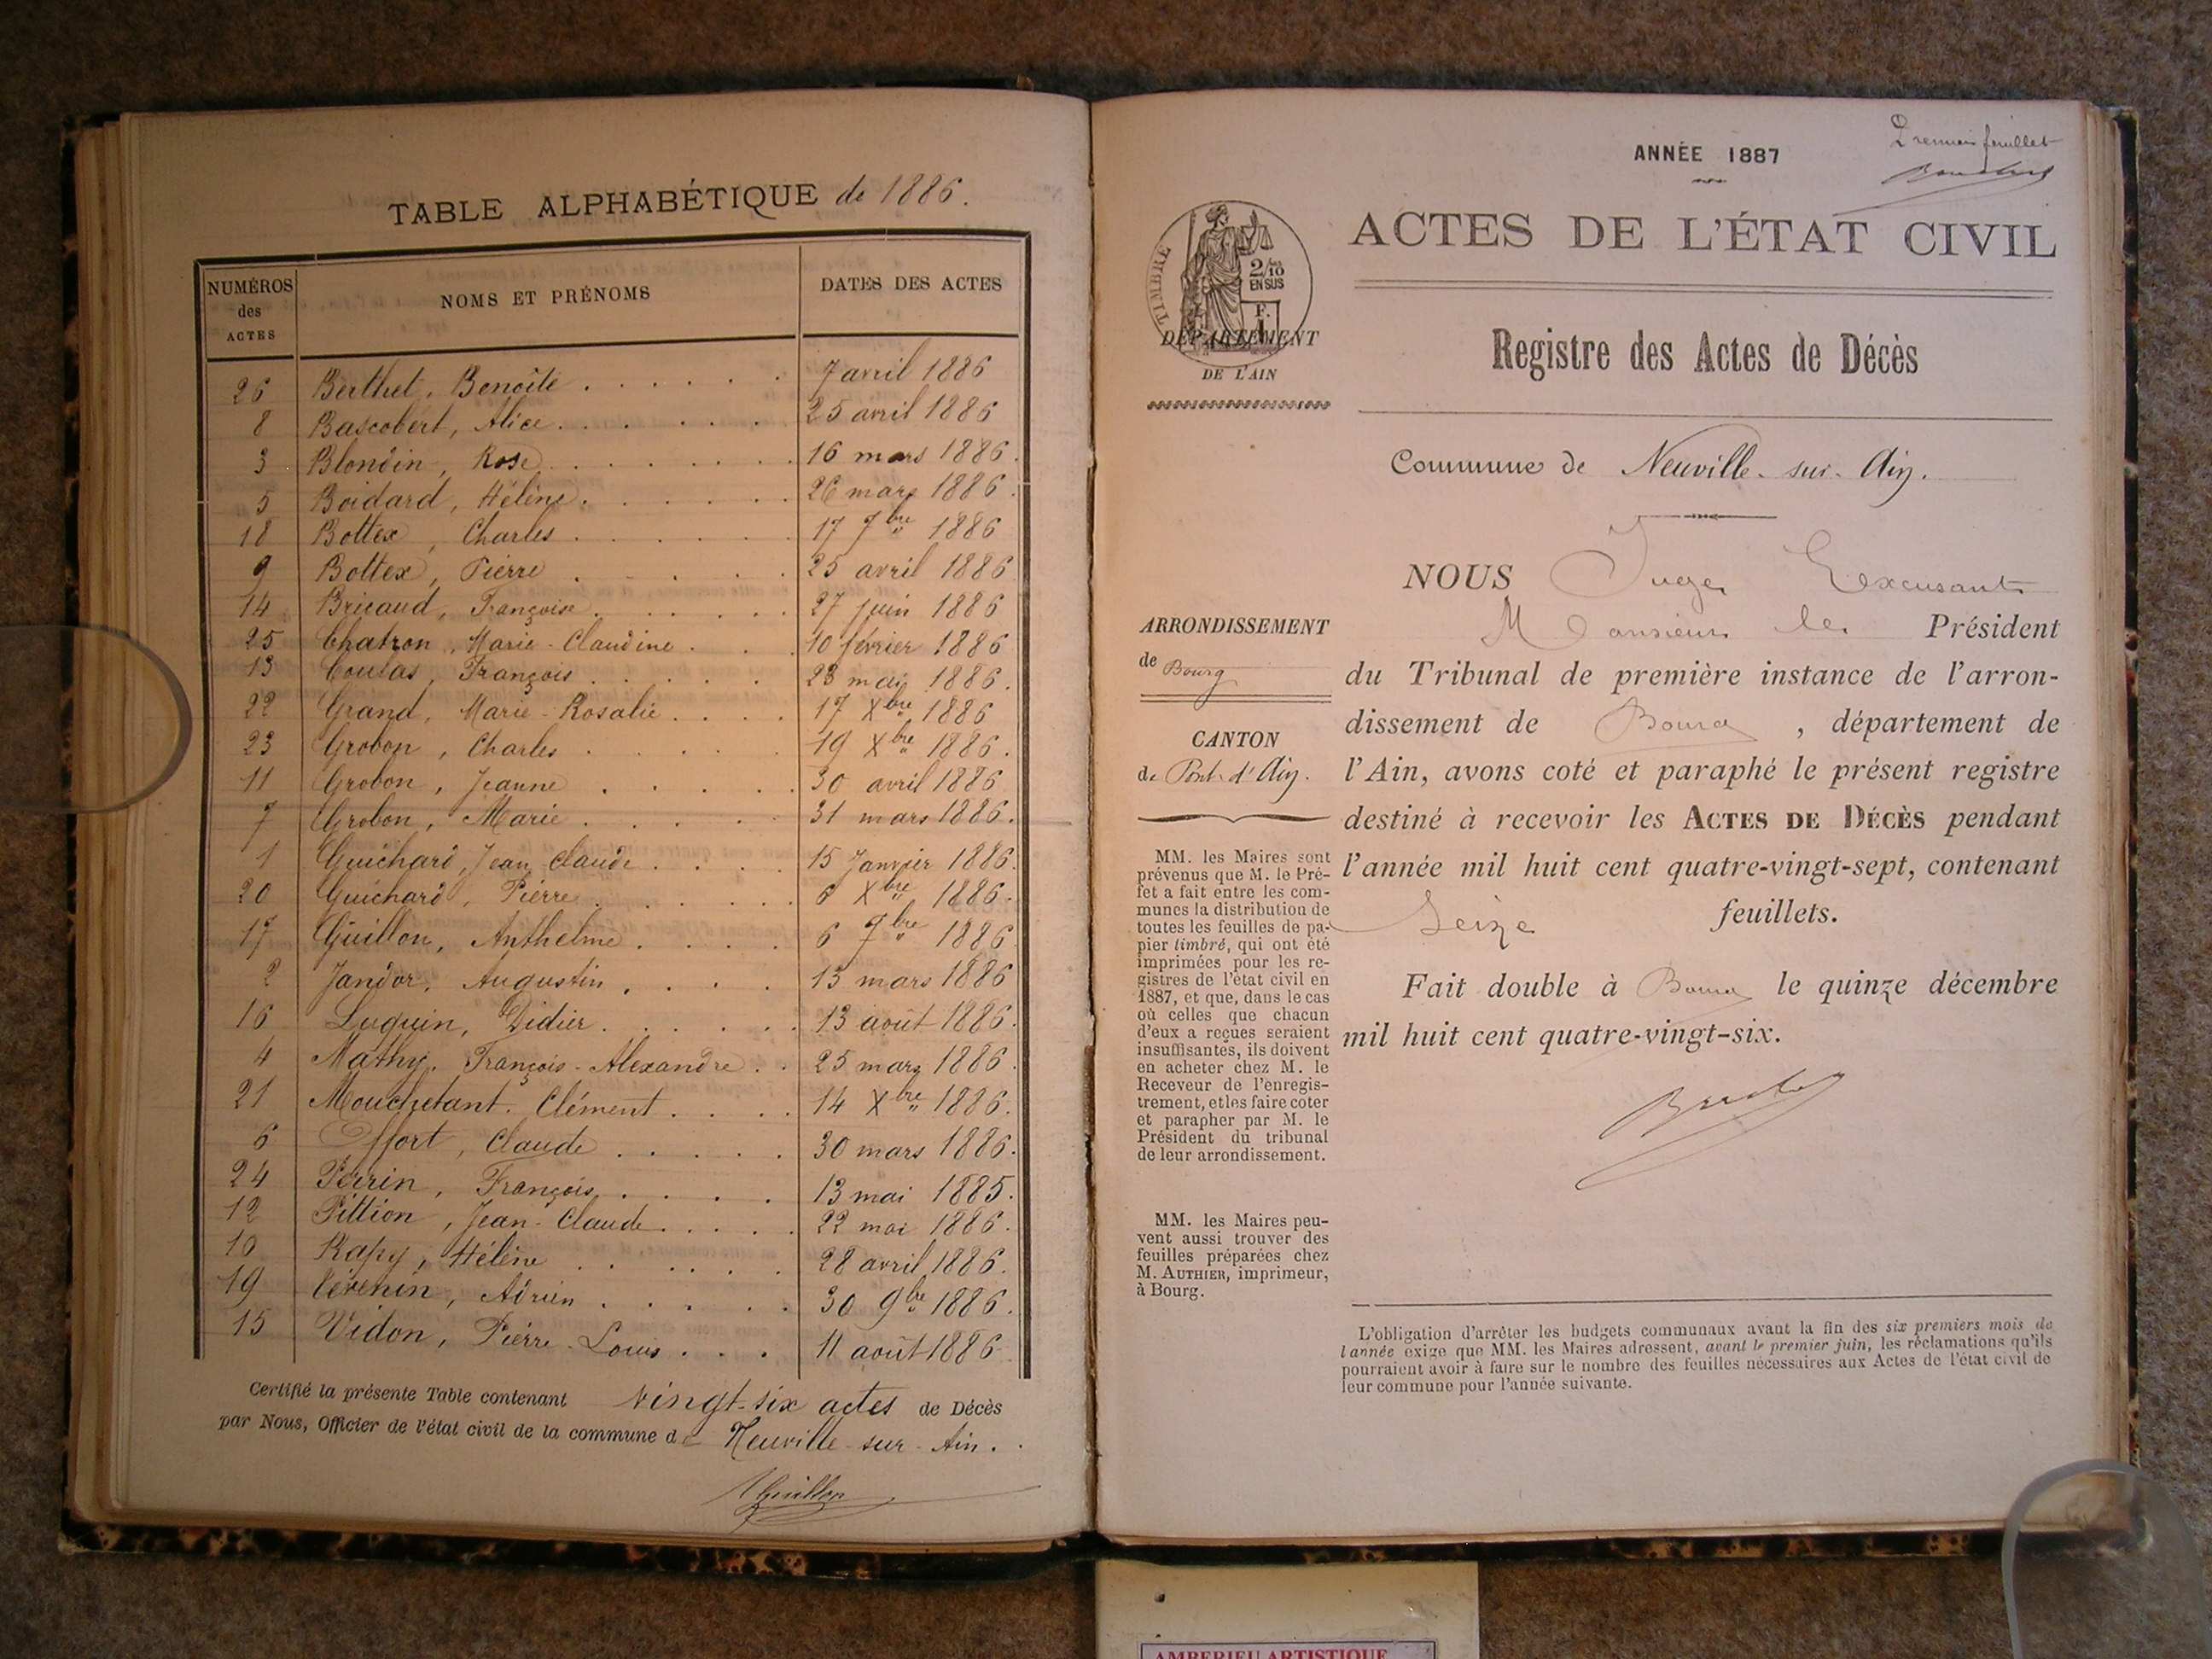 TABLE ALPHABÉTIQUE de 1886.
NUMÉROS des ACTES NOMS ET PRÉNOMS DATES DES ACTES
26 Berthet, Benoîte . . . . . . 7 avril 1886
8 Bascobert, Alice . . . . . . 25 avril 1886
3 Blondin, Rose . . . . . . 16 mars 1886.
5 Boidard, Hélène . . . . . . 26 mars 1886.
18 Bottex, Charles . . . . . . 17 7bre 1886
9 Bottex, Pierre . . . . . 25 avril 1886
14 Bricaud, Françoise . . . . . 27 juin 1886
25 Chatron, Marie-Claudine . . . 10 février 1886
13 François . . . . . 23 mai 1886.
22 Grand, Marie-Rosalie . . . . 17 Xbre 1886
23 Grobon, Charles . . . . . 19 Xbre 1886.
11 Grobon, Jeanne . . . . . 30 avril 1886
7 Grobon, Marie . . . . . 31 mars 1886.
1 Guichard, Jean Claude . . . . 15 Janvier 1886.
20 Guichard, Pierre . . . . . 6 Xbre 1886.
17 Guillon, Anthelme . . . . 6 7bre 1886
2 Jandor, Augustin . . . . 13 mars 1886
16 Luquin, Didier . . . . . . 13 août 1886.
4 Mathy, François-Alexandre . . 25 mars 1886.
21 Mouchetant, Clément . . . . 14 Xbre 1886.
6 Offort, Claude . . . . . 30 mars 1886.
24 Perrin, François . . . . 13 mai 1885.
12 Pittion, Jean-Claude . . . . 22 mai 1886.
10 Rapy, Hélène . . . . . . 28 avril 1886.
19 Vévenin, Adrien . . . . . 30 9bre 1886.
15 Vidon, Pierre-Louis . . . 11 août 1886
Certifié la présente Table contenant vingt-six actes de Décès
par Nous, Officier de l'état civil de la commune de Neuville-sur-Ain.
Guillon
Premier feuillet
ANNÉE 1887
ACTES DE L'ÉTAT CIVIL
TIMBRE
2/10
EN SUS
1 F.
DÉPARTEMENT
DE L'AIN
Registre des Actes de Décès
Commune de Neuville-sur-Ain.
NOUS Juge Excusant
Monsieur le Président
du Tribunal de première instance de l'arron-
dissement de Bourg, département de
l'Ain, avons coté et paraphé le présent registre
destiné à recevoir les ACTES DE DÉCÈS pendant
l'année mil huit cent quatre-vingt-sept, contenant
Seize feuillets.
Fait double à Bourg le quinze décembre
mil huit cent quatre-vingt-six.
ARRONDISSEMENT
de Bourg
CANTON
de Pont-d'Ain.
MM. les Maires sont
prévenus que M. le Pré-
fet a fait entre les com-
munes la distribution de
toutes les feuilles de pa-
pier timbré, qui ont été
imprimées pour les re-
gistres de l'état civil en
1887, et que, dans le cas
où celles que chacun
d'eux a reçues seraient
insuffisantes, ils doivent
en acheter chez M. le
Receveur de l'enregis-
trement, et les faire coter
et parapher par M. le
Président du tribunal
de leur arrondissement.
MM. les Maires peu-
vent aussi trouver des
feuilles préparées chez
M. AUTHIER, imprimeur,
à Bourg.
L'obligation d'arrêter les budgets communaux avant la fin des six premiers mois de
l'année exige que MM. les Maires adressent, avant le premier juin, les réclamations qu'ils
pourraient avoir à faire sur le nombre des feuilles nécessaires aux Actes de l'état civil de
leur commune pour l'année suivante.
AMBERIEU ARTISTIQUE